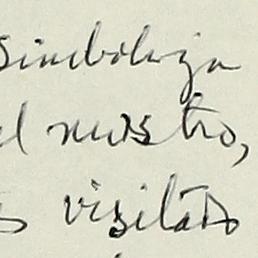 Simboliza
el nuestro,
s visitado